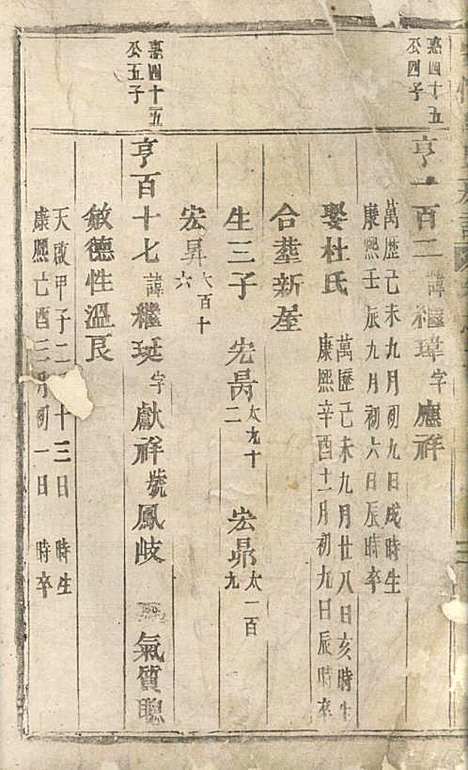 嘉四十五
公四子
亨一百二 諱繼瑋字應祥
萬歷己未九月初九日戌時生
康熙壬辰九月初六日辰時卒
娶杜氏
萬歷己未九月廿八日亥時生
康熙辛酉十一月初九日辰時卒
合塟新屋
生三子 宏昺太九十二 宏昴太一百九
宏昇太百十六
嘉四十五
公五子
亨百十七諱繼珽字獻祥號鳳岐 氣質聰
敏德性溫良
天啟甲子二十三日 時生
康熙己酉三月初一日 時卒